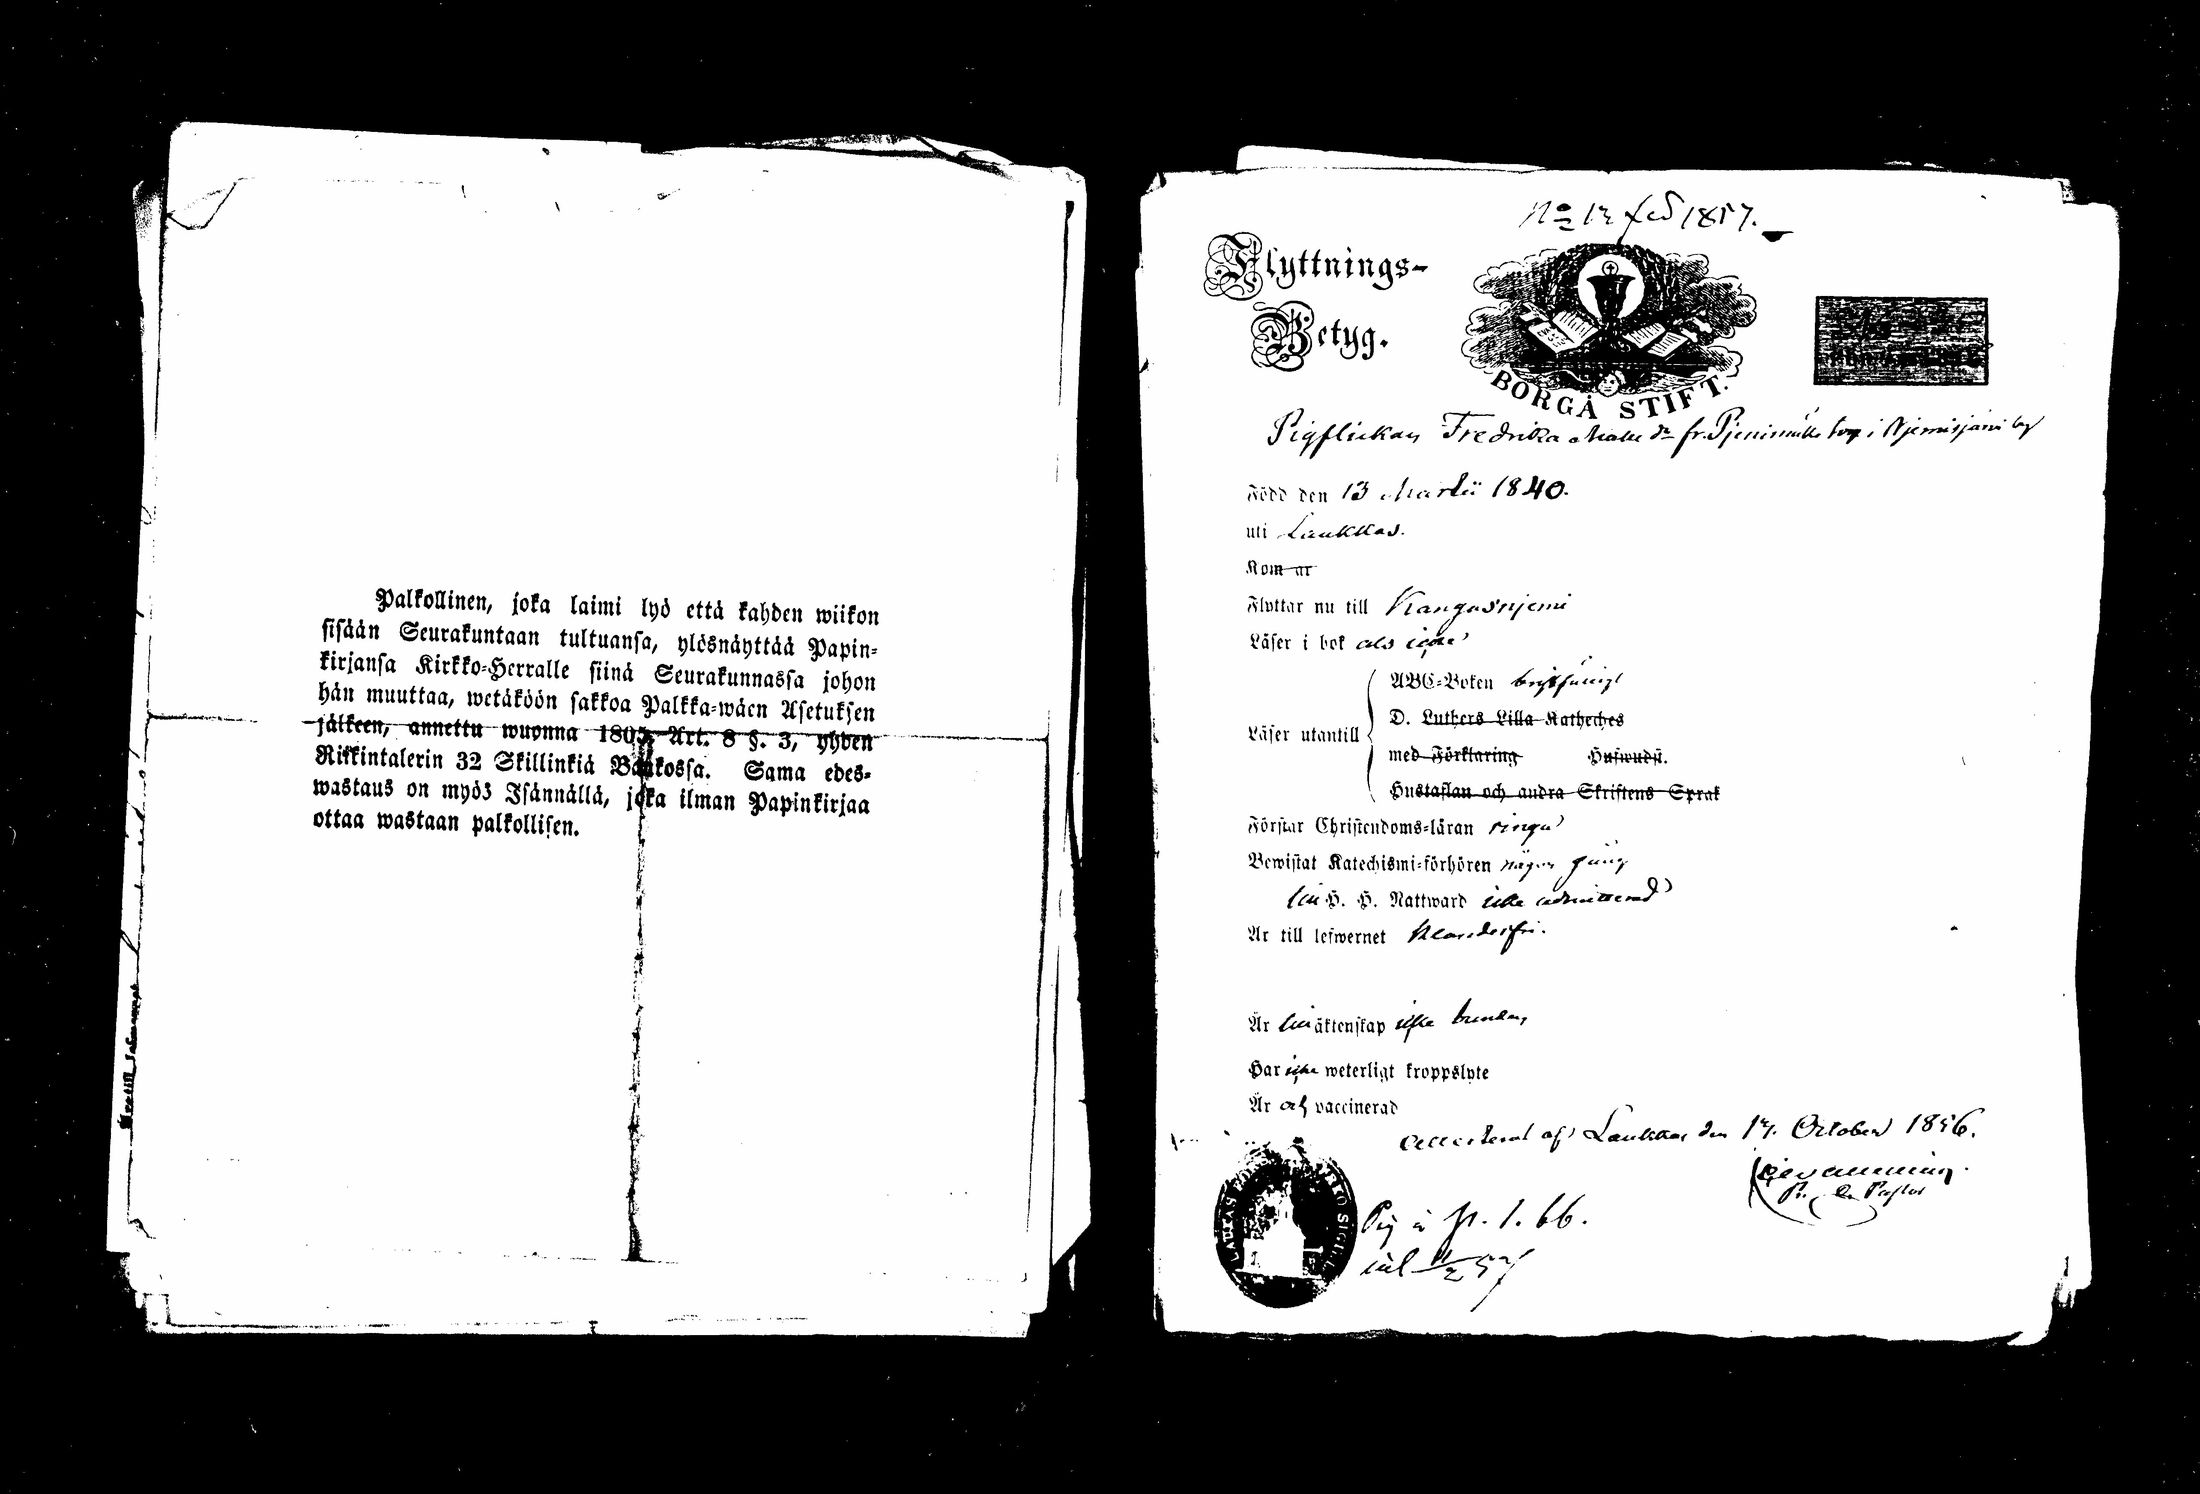 Palkollinen, joka laimi lyö että kahden wiikon
sisään Seurakuntaan tultuansa, ylösnäyttää Papin-
kirjansa Kirkko-Herralle siinä Seurakunnassa johon
hän muuttaa, wetäköön sakkoa Palkka-wäen Asetuksen
jälkeen, annettu wuonna 1805, Art. 8 §. 3, yhden
Rikkintalerin 32 Skillinkiä Bankossa. Sama edes-
wastaus on myös Isännällä, joka ilman Papinkirjaa
ottaa wastaan palkollisen.
No 12 fed 1857.
Flyttnings-
Betyg.
BORGÅ STIFT.
Pigflickan Fredrika fr. i by
Född den 13 Martii 1840.
uti Laukkas.
Kom ar
Flyttar nu till Kangasnjemi
Läser i bok
ABC-Boken
Läser utantill
D. Luthers Lilla Katheches
med Förklaring Huswudst.
Hustaflan och andra Skriftens Språk
Förstår Christendoms-läran ringa
Bewistat Katechismi-förhören någon gång
H. H. Nattward icke admitterad
Är till lefwernet klanderfri.
Är äktenskap icke bunden
Har icke weterligt kroppslyte
Är och vaccinerad
af Laukkas den 17. October 1856.
Pig i p. 1. 66.